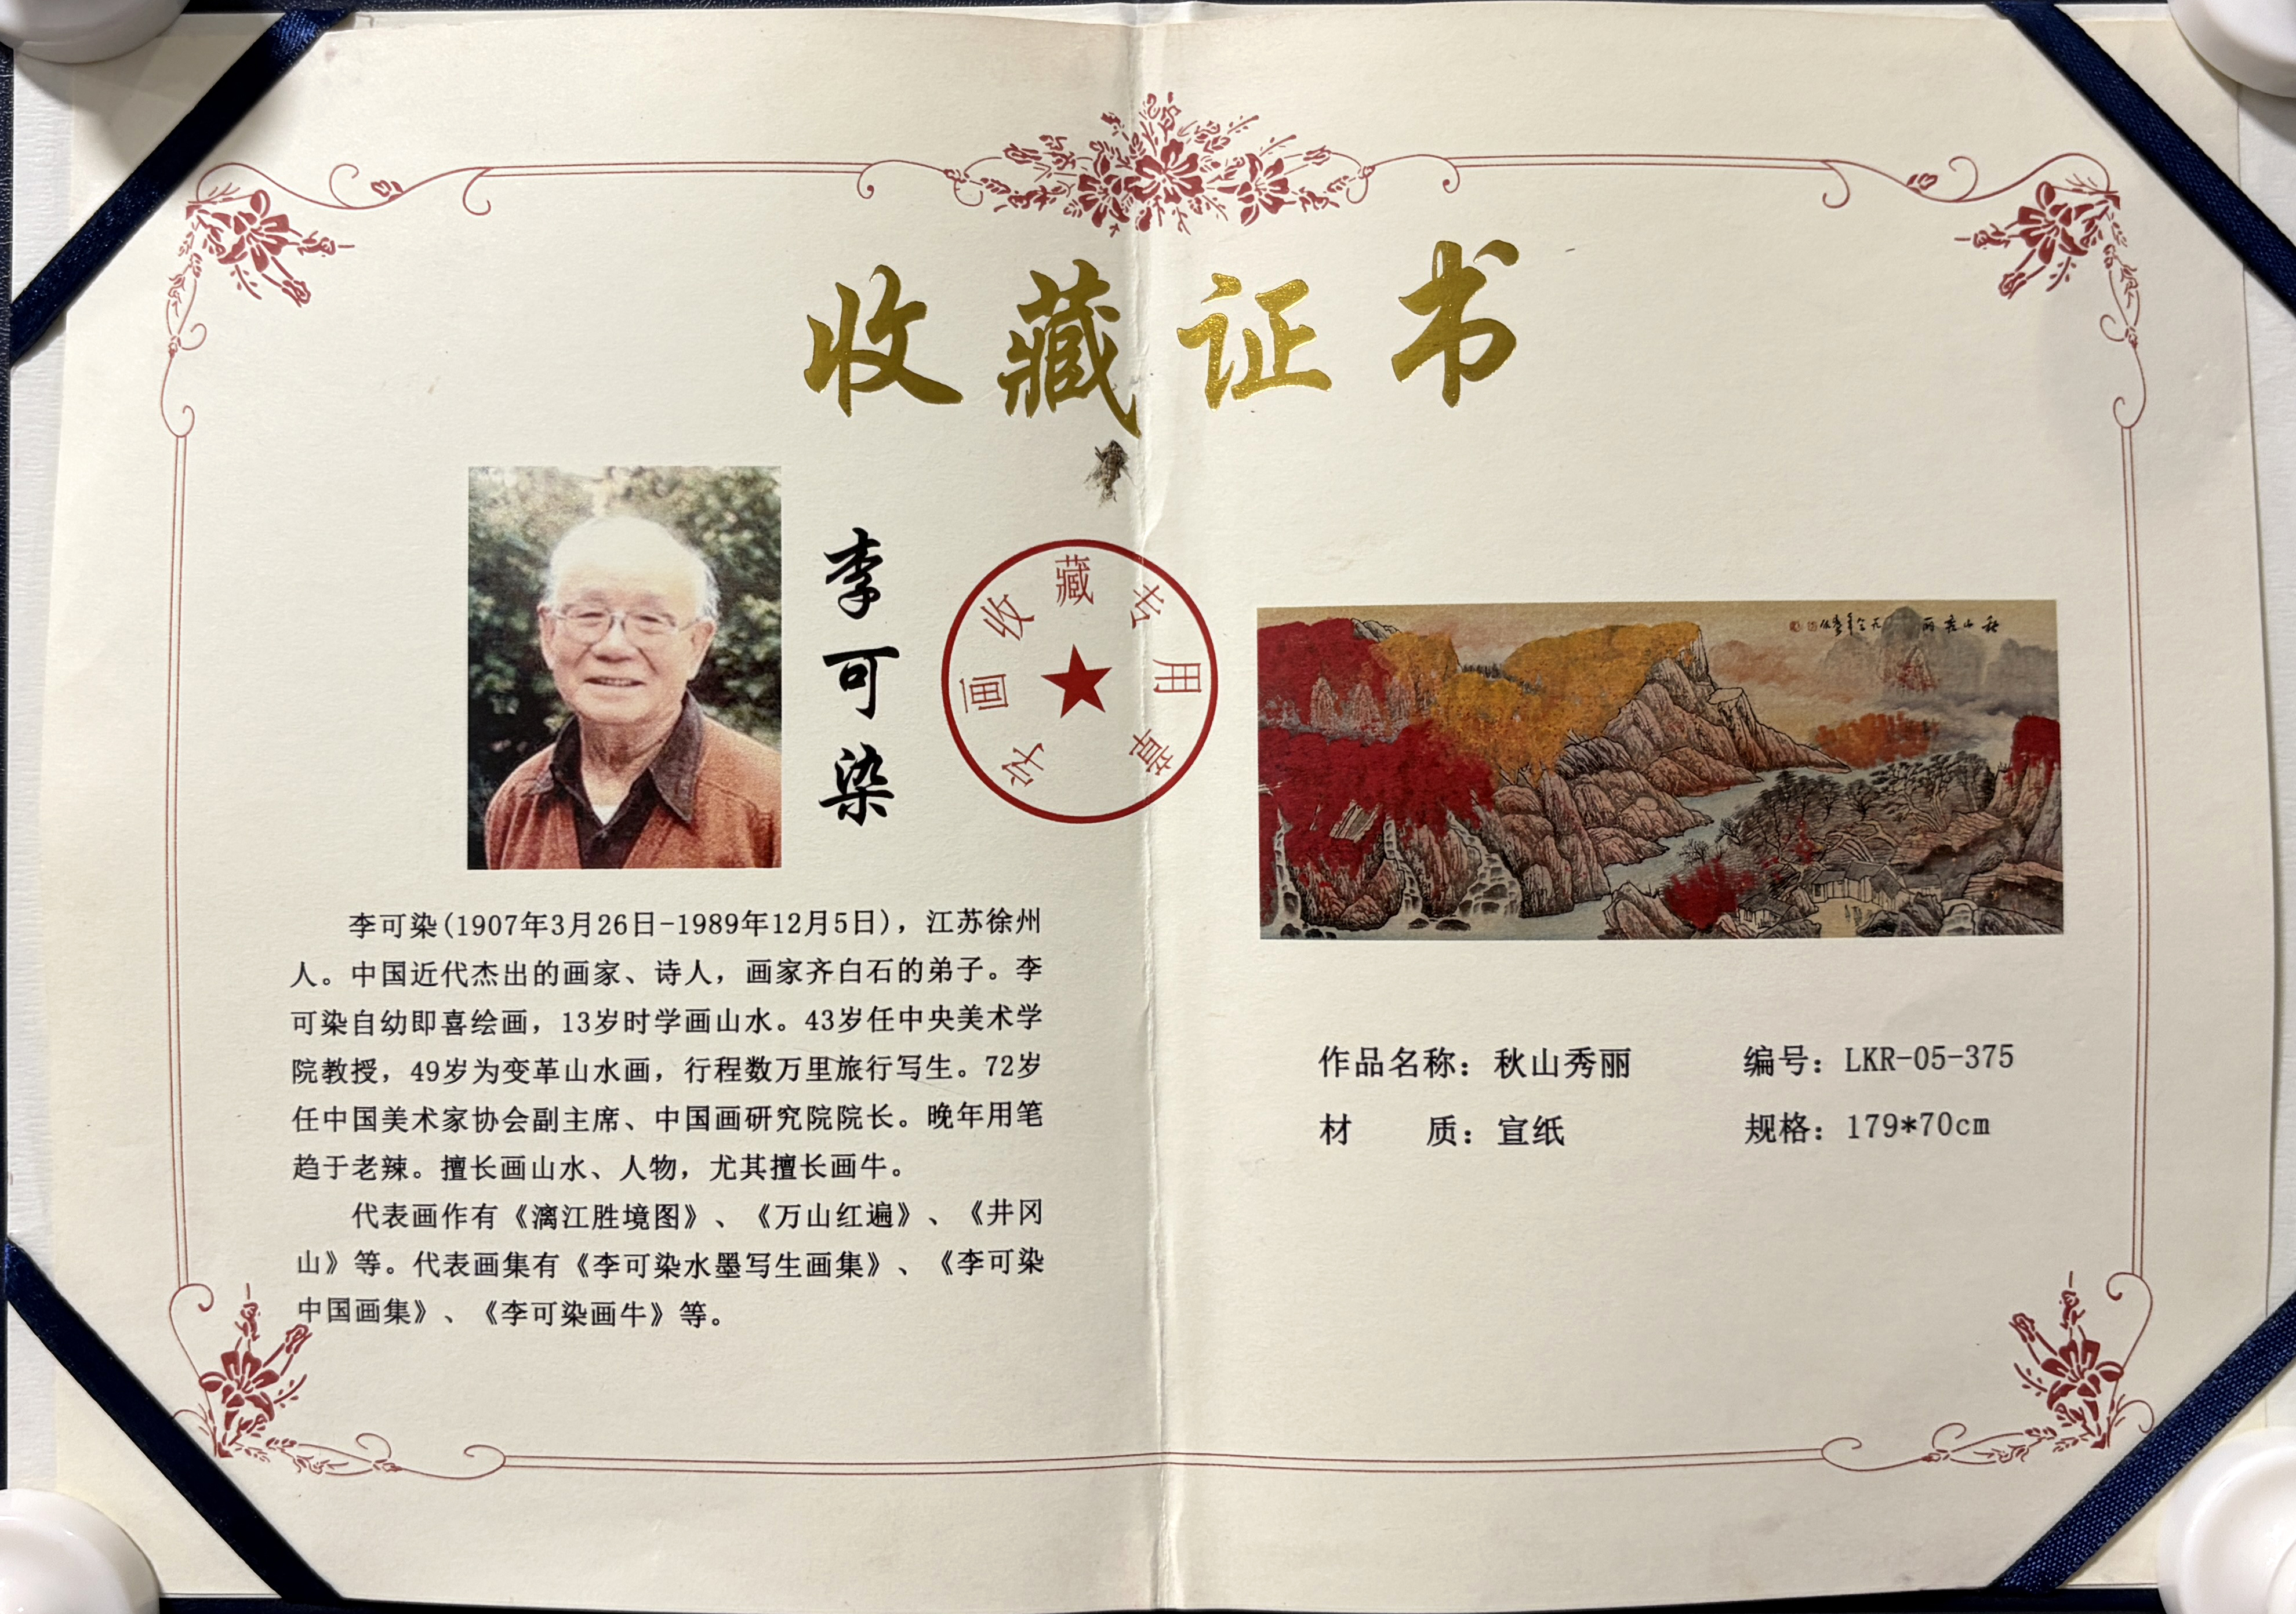 收藏证书
李可染
字画收藏专用章
李可染(1907年3月26日-1989年12月5日)，江苏徐州
人。中国近代杰出的画家、诗人，画家齐白石的弟子。李
可染自幼即喜绘画，13岁时学画山水。43岁任中央美术学
院教授，49岁为变革山水画，行程数万里旅行写生。72岁
任中国美术家协会副主席、中国画研究院院长。晚年用笔
趋于老辣。擅长画山水、人物，尤其擅长画牛。
代表画作有《漓江胜境图》、《万山红遍》、《井冈
山》等。代表画集有《李可染水墨写生画集》、《李可染
中国画集》、《李可染画牛》等。
秋山秀丽
作品名称：秋山秀丽 编号：LKR-05-375
材 质：宣纸 规格：179*70cm